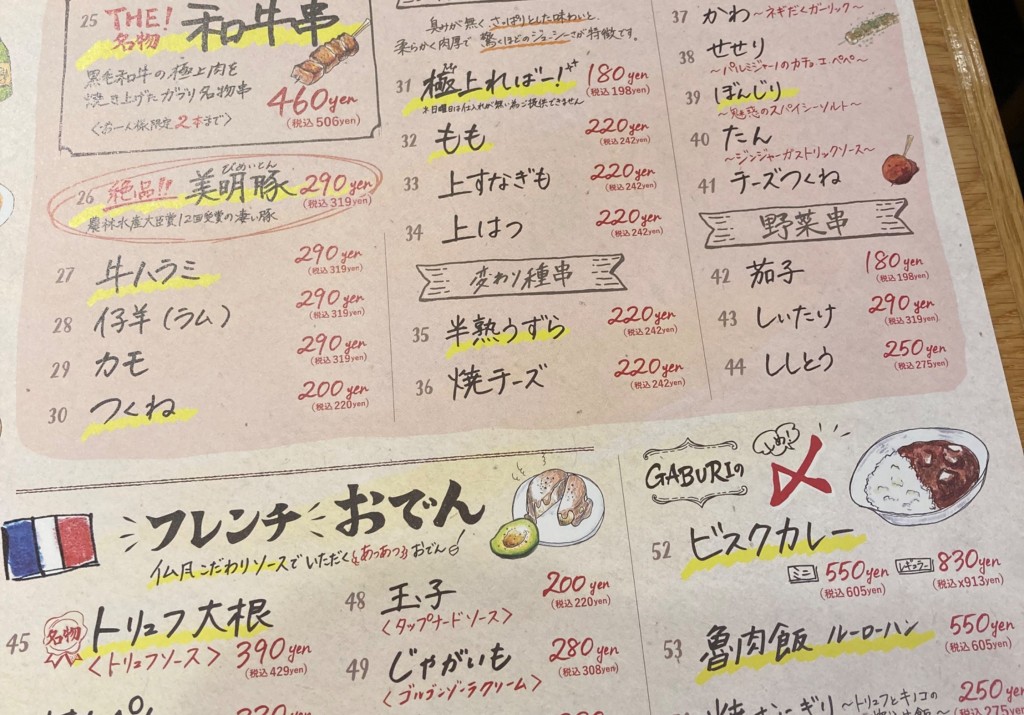 25 THE!
名物
和牛串
黒毛和牛の極上肉を
焼き上げたガブリ名物串
<お一人様限定2本まで>
460yen
(税込506yen)
26 絶品!! 美明豚 290yen
びめいとん
(税込319yen)
農林水産大臣賞12回受賞の凄い豚
27 牛ハラミ 290yen
(税込319yen)
28 仔羊(ラム) 290yen
(税込319yen)
29 カモ 290yen
(税込319yen)
30 つくね 200yen
(税込220yen)
臭みが無くさっぱりとした味わいと、
柔らかく肉厚で驚くほどのジューシーさが特徴です。
31 極上ればー! 180yen
(税込198yen)
※日曜日は仕入れが無い為ご提供できません
32 もも 220yen
(税込242yen)
33 上すなぎも 220yen
(税込242yen)
34 上はつ 220yen
(税込242yen)
変わり種串
35 半熟うずら 220yen
(税込242yen)
36 焼チーズ 220yen
(税込242yen)
37 かわ ~ネギだくガーリック~
38 せせり
~パルミジャーノのカチョエペペ~
39 ぼんじり
~魅惑のスパイシーソルト~
40 たん
~ジンジャーガストリックソース~
41 チーズつくね
野菜串
42 茄子 180yen
(税込198yen)
43 しいたけ 290yen
(税込319yen)
44 ししとう 250yen
(税込275yen)
フレンチおでん
仏風こだわりソースでいただくあつあつおでん!
45 名物 トリュフ大根
<トリュフソース> 390yen
(税込429yen)
48 玉子 200yen
<タップナードソース>
(税込220yen)
49 じゃがいも 280yen
<ゴルゴンゾーラクリーム>
(税込308yen)
GABURIの
〆
しめ!
52 ビスクカレー
ミニ 550yen
(税込605yen)
レギュラー 830yen
(税込x913yen)
53 魯肉飯 ルーローハン 550yen
(税込605yen)
~トリュフとキノコの
250yen
(税込275yen